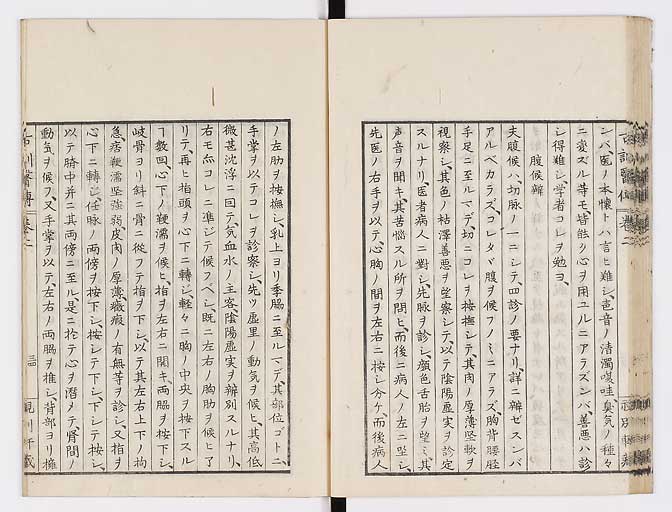 ンバ、医ノ本懐トハ言ヒ難シ、声音ノ清濁嗄哇臭気ノ種々
ニ変ズル等モ皆能ク心ヲ用ユルニアラズンバ、善悪ハ診
シ得難シ、学者コレヲ勉ヨ、
腹候辨
夫腹候ハ、切脉ノ一ニシテ、四診ノ要ナリ、詳ニ辨ゼスンバ
アルベカラズ、コレタヾ腹ヲ候フノミニアラズ、胸背腰脛
手足ニ至ルマデ、切ニコレヲ按撫シテ、其肉ノ厚薄堅軟ヲ
視察シ、其色ノ枯澤善悪ヲ望察シテ、以テ陰陽虚実ヲ診定
スルナリ、医者病人ニ對シ、先脉ヲ診シ、顔色舌胎ヲ望ミ、其
声音ヲ聞キ、其苦悩スル所ヲ問ヒ、而後ニ病人ノ左ニ坐シ、
先医ノ右手ヲ以テ、心胸ノ間ヲ左右ニ按シ分ケ、而後病人
ノ左肋ヲ按撫シ、乳上ヨリ季脇ニ至ルマデ、其部位ゴトニ、
手掌ヲ以テコレヲ診察シ、先ツ虚里ノ動気ヲ候ヒ、其高低
微甚沈浮ニ因テ、気血水ノ主客、陰陽虚実ヲ辨別スルナリ、
右モ亦コレニ準ジテ候フベシ、既ニ左右ノ胸肋ヲ候ヒ了
リテ、再ヒ指頭ヲ心下ニ轉シ、軽々ニ胸ノ中央ヲ按下スル
ヿ数回、心下ノ鞕濡ヲ候ヒ、指ヲ左右ニ開キ、両脇ヲ按下シ、
岐骨ヨリ斜ニ骨ニ從フテ指ヲ下シ、以テ其左右上下ノ拘
急、痞鞕濡堅強弱、皮肉ノ厚薄、癥瘕ノ有無等ヲ診シ、又指ヲ
心下ニ轉シ、任脉ノ両傍ヲ按下シ、按シテ下シ、下シテ按シ、
以テ臍中并ニ其両傍ニ至ル、是ニ於テ心ヲ潜メテ、腎間ノ
動気ヲ候フ、又手掌ヲ以テ、左右ノ両脇ヲ推シ、背部ヨリ擁